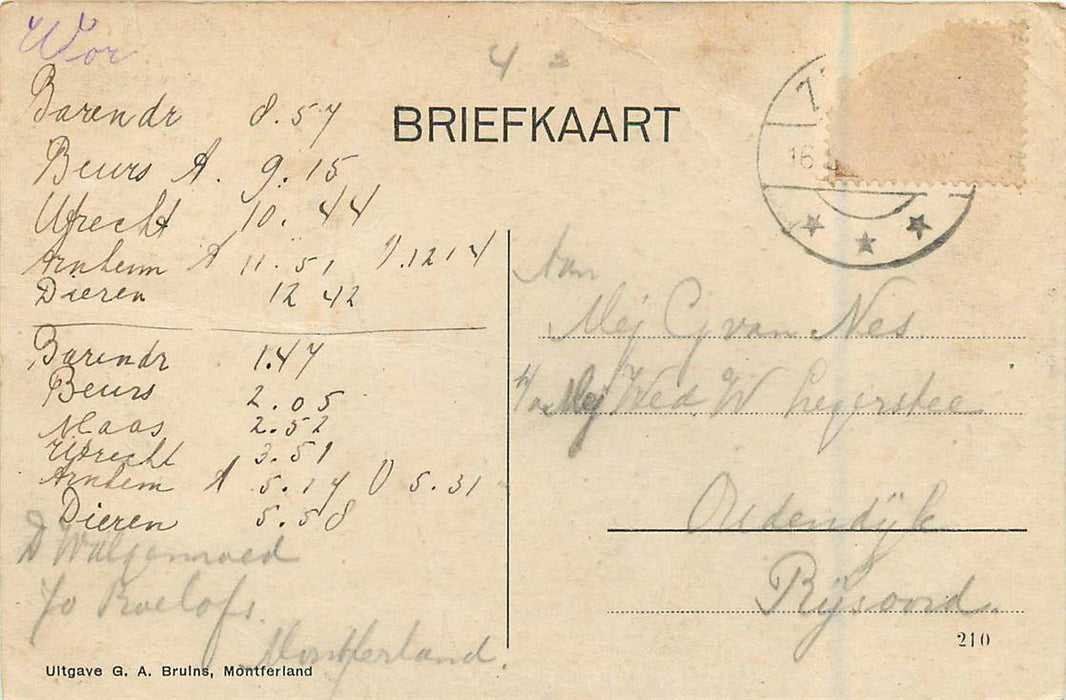 Wor
4
BRIEFKAART
Z
16
Barendr 8.57
Beurs A. 9.15
Utrecht 10.44
Arnhem A 11.51 V.12 14
Dieren 12 42
Barendr 1.47
Beurs 2.05
Maas 2.52
Utrecht 3.51
Arnhem A 5.14 V 5.31
Dieren 5.58
D Walgemoed
Jo Roelofs.
Montferland.
Aan
Mej C van Nes.
Mej Wed. W Legerstee
Oudendijk
Rijsoord.
210
Uitgave G. A. Bruins, Montferland